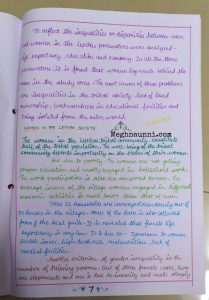 To reflect the inequalities or disparities between men
and women in the Lepcha parameters were analysed -
life expectancy, education and economy. In all the three
parameters, it is found that women lag much behind the
men in the study area. The root causes of these problems
are inequalities in the tribal society, lack of land
ownership, backwardness in educational facilities and
being isolated from the outer world.
WOMEN IN THE LEPCHA SOCIETY:
Meghnaunni.com
The women in the Lepcha tribal community constitute
half of the tribal population. The well being of the tribal
community depend importantly on the status of their women
Due to poverty, the women are not getting
proper education and mostly engaged in Agricultural work.
The work participation is also low compared to men. The
average income of the village women engaged in different
economic activities is much lower than that of men.
Total 15 households are surveyed randomly out of
30 houses in the village. Some of the data is also collected
from of the local people. It is revealed that female life
expectancy is very low. It is due to - Ignorance to women
health issues, high death rate, malnutrition, lack of
medical facilities.
Another criterion of gender inequality is the
number of missing women. Out of three female cases, two
are elopements and one is due to the intake of much
7